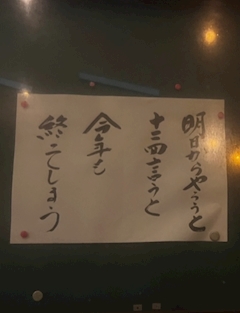 明日からやろうと
十二回言うと
今年も
終ってしまう